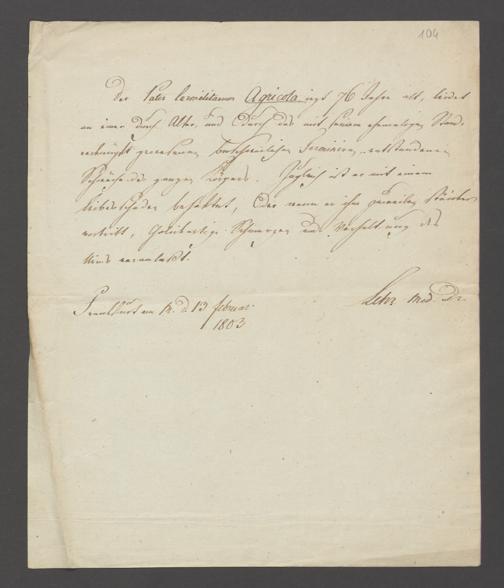 104
Der Pater Carmelitaner Agricola ist 76 Jahre alt, leidet
an einer durch Alter, und durch das mit seinem ehemaligen Stand
verknüpft gewesenen beschwerlichen entstandenen
Schwäche des ganzen Körpers. Zugleich ist er mit einem
Leibesschaden behaftet, der wenn er ihn zuweilen stärker
vortritt, Schmerzen und Verhaltung des
Urins veranlaßt.
Frankfurt am M. d 13 februar
1803
Lehr Med. Dr.